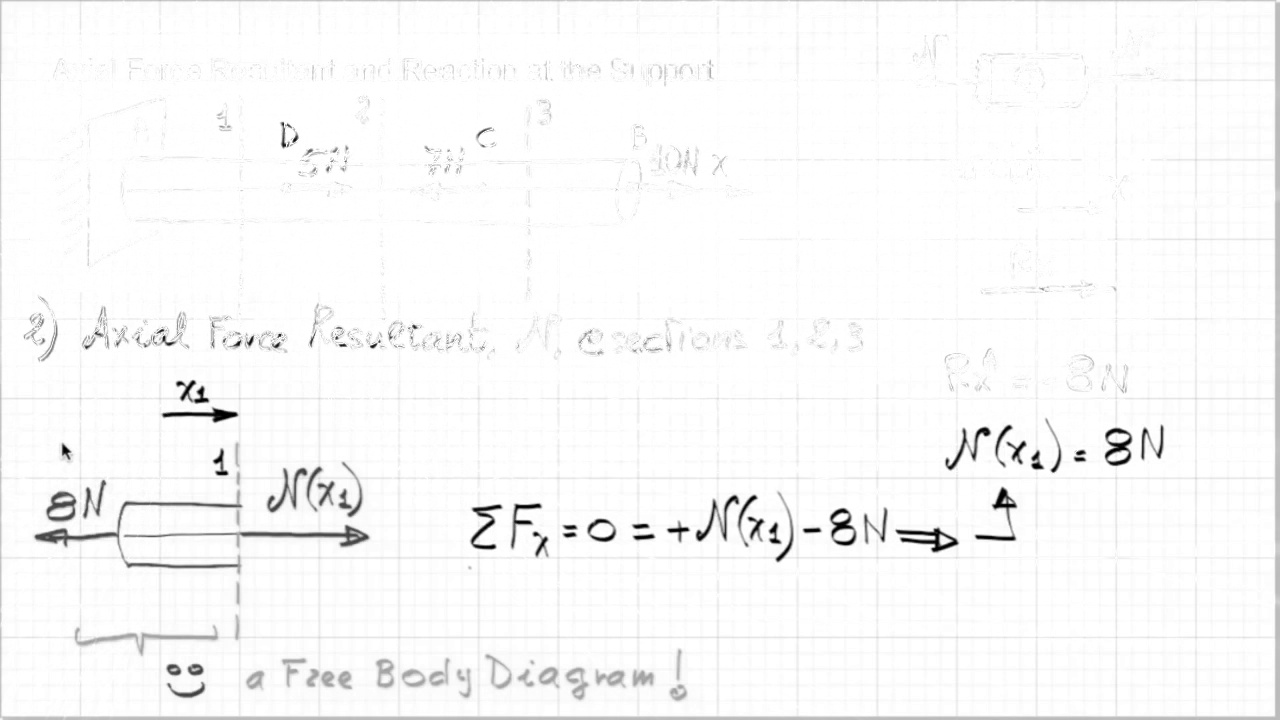 Axial Force Resultant and Reaction at the Support
N N
A 1 D 5N 2 7N C 3 B 10N x
x
2) Axial Force Resultant, N, @ sections 1, 2, 3
RxA = -8N
x1
N(x1) = 8N
1
8N N(x1)
ΣFx = 0 = +N(x1) - 8N ⇒
a Free Body Diagram!